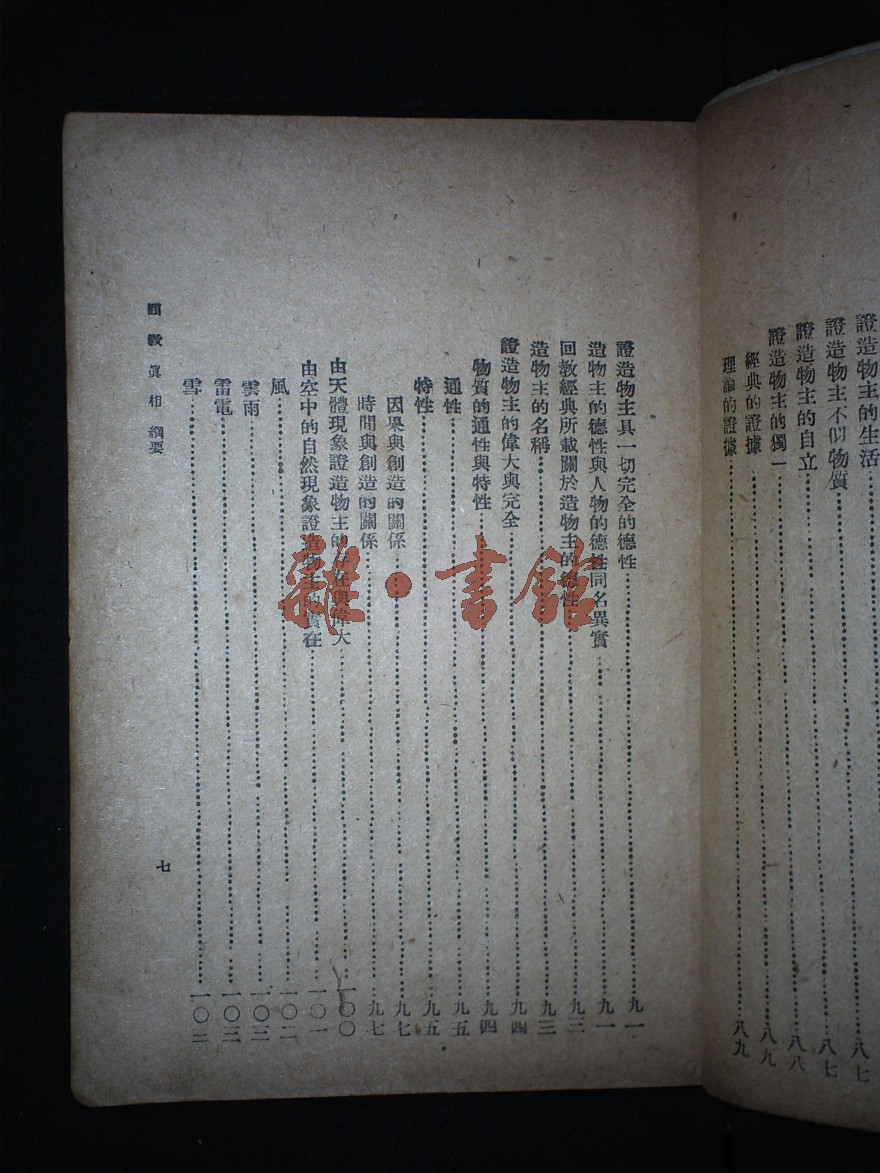 證造物主的生活……八七
證造物主不似物質……八七
證造物主的自立……八八
證造物主的獨一
經典的證據……八九
理論的證據……八九
證造物主具一切完全的德性……九一
造物主的德性與人物的德性同名異實……九一
回教經典所載關於造物主的德性……九三
造物主的名稱……九三
證造物主的偉大與完全……九四
物質的通性與特性……九四
通性……九五
特性……九五
因果與創造的關係……九七
時間與創造的關係……九七
由天體現象證造物主的存在與偉大……一〇〇
由空中的自然現象證造物主的實在……一〇一
風……一〇二
雲雨……一〇三
雷電……一〇三
雪……一〇三
回教真相 綱要
七
雜·書館